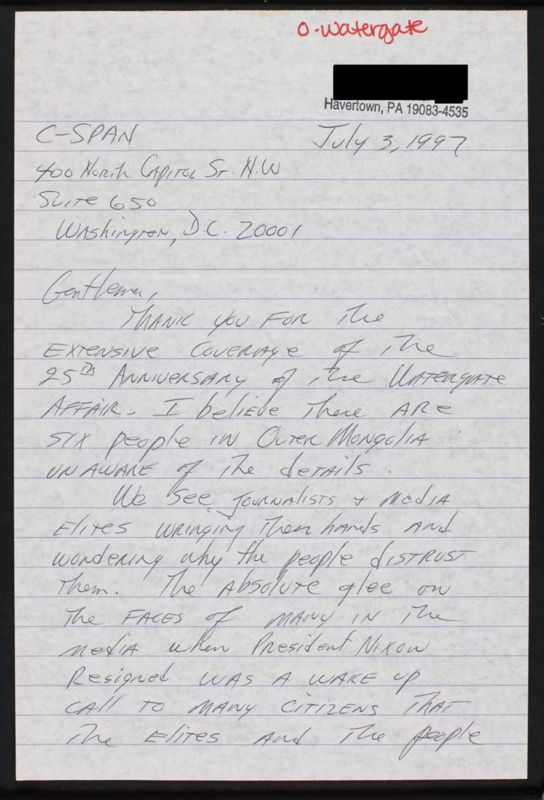 O-Watergate
Havertown, PA 19083-4535
C-SPAN
July 3, 1997
400 North Capitol St. N.W
Suite 650
Washington, D.C. 20001
Gentlemen,
Thank you for the
extensive coverage of the
25th Anniversary of the Watergate
Affair. I believe there are
six people in Outer Mongolia
unaware of the details.
We see journalists + media
elites wringing their hands and
wondering why the people distrust
them. The absolute glee on
the faces of many in the
media when President Nixon
resigned was a wake up
call to many citizens that
the elites and the people